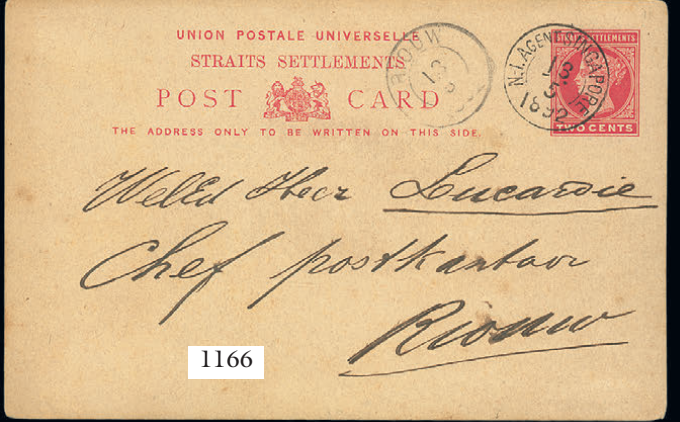 UNION POSTALE UNIVERSELLE
STRAITS SETTLEMENTS
POST CARD
THE ADDRESS ONLY TO BE WRITTEN ON THIS SIDE.
RIOUW
13
5
N.I. AGENT SINGAPORE
13
5
1892
STRAITS SETTLEMENTS
TWO CENTS
WelEd Heer Lucardie
Chef postkantoor
Riouw
1166